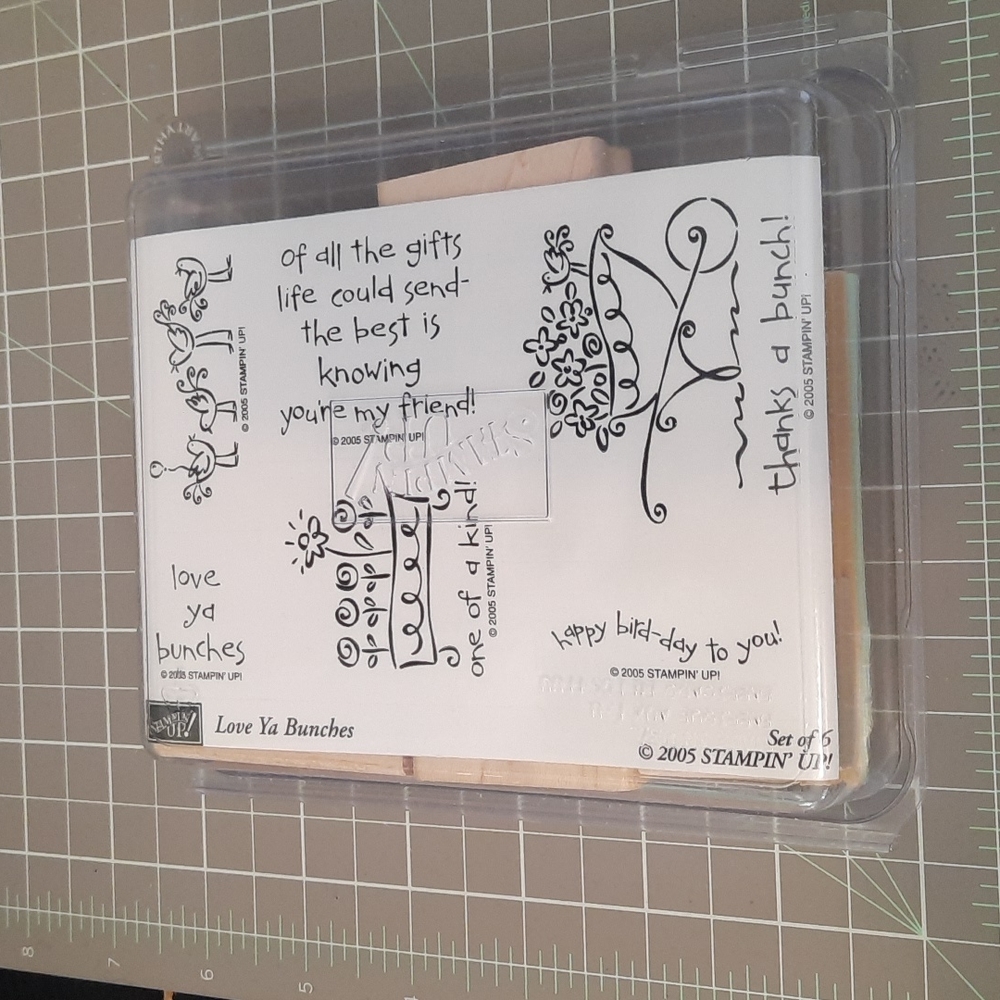 © 2005 STAMPIN' UP!
of all the gifts
life could send-
the best is
knowing
you're my friend!
© 2005 STAMPIN' UP!
thanks a bunch!
© 2005 STAMPIN' UP!
one of a kind!
© 2005 STAMPIN' UP!
love
ya
bunches
© 2005 STAMPIN' UP!
happy bird-day to you!
© 2005 STAMPIN' UP!
STAMPIN'
UP!
Love Ya Bunches
Set of 6
© 2005 STAMPIN' UP!
STAMPIN'
UP!
8
7
6
5